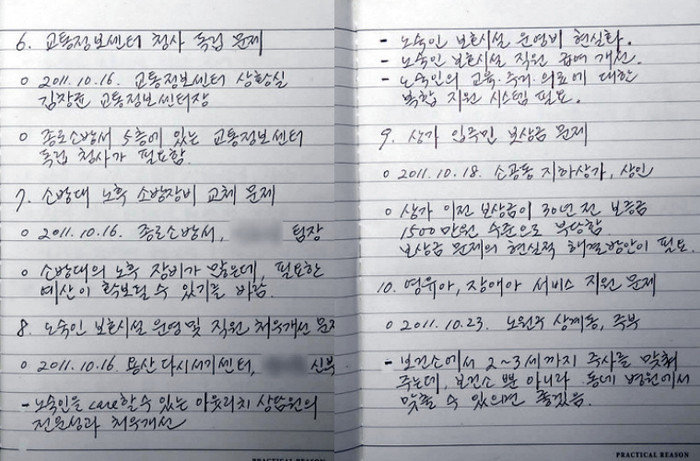 6. 교통정보센터 청사 독립 문제
o 2011.10.16. 교통정보센터 상황실
김장균 교통정보센터장
o 종로소방서 5층에 있는 교통정보센터
독립 청사가 필요함.
7. 소방대 노후 소방장비 교체 문제
o 2011.10.16. 종로소방서, 팀장
o 소방대의 노후 장비가 많은데, 필요한
예산이 확보될 수 있기를 바람.
8. 노숙인 보호시설 운영 및 직원 처우개선 문제
o 2011.10.16. 용산 다시서기센터, 신부
- 노숙인을 care할 수 있는 아웃리치 상담원의
전문성과 처우개선
PRACTICAL REASON
- 노숙인 보호시설 운영비 현실화.
- 노숙인 보호시설 직원 급여 개선.
- 노숙인의 교육·주거·의료에 대한
복합 지원 시스템 필요.
9. 상가 입주민 보상금 문제
o 2011.10.18. 소공동 지하상가, 상인
o 상가 이전 보상금이 30년 전 보증금
1500만원 수준으로 부당함.
보상금 문제의 현실적 해결방안이 필요.
10. 영유아, 장애아 서비스 지원 문제
o 2011.10.23. 노원구 상계동, 주부
- 보건소에서 2~3세까지 주사를 맞춰
주는데, 보건소 뿐 아니라 동네 병원에서
맞을 수 있으면 좋겠음.
PRACTICAL REASON